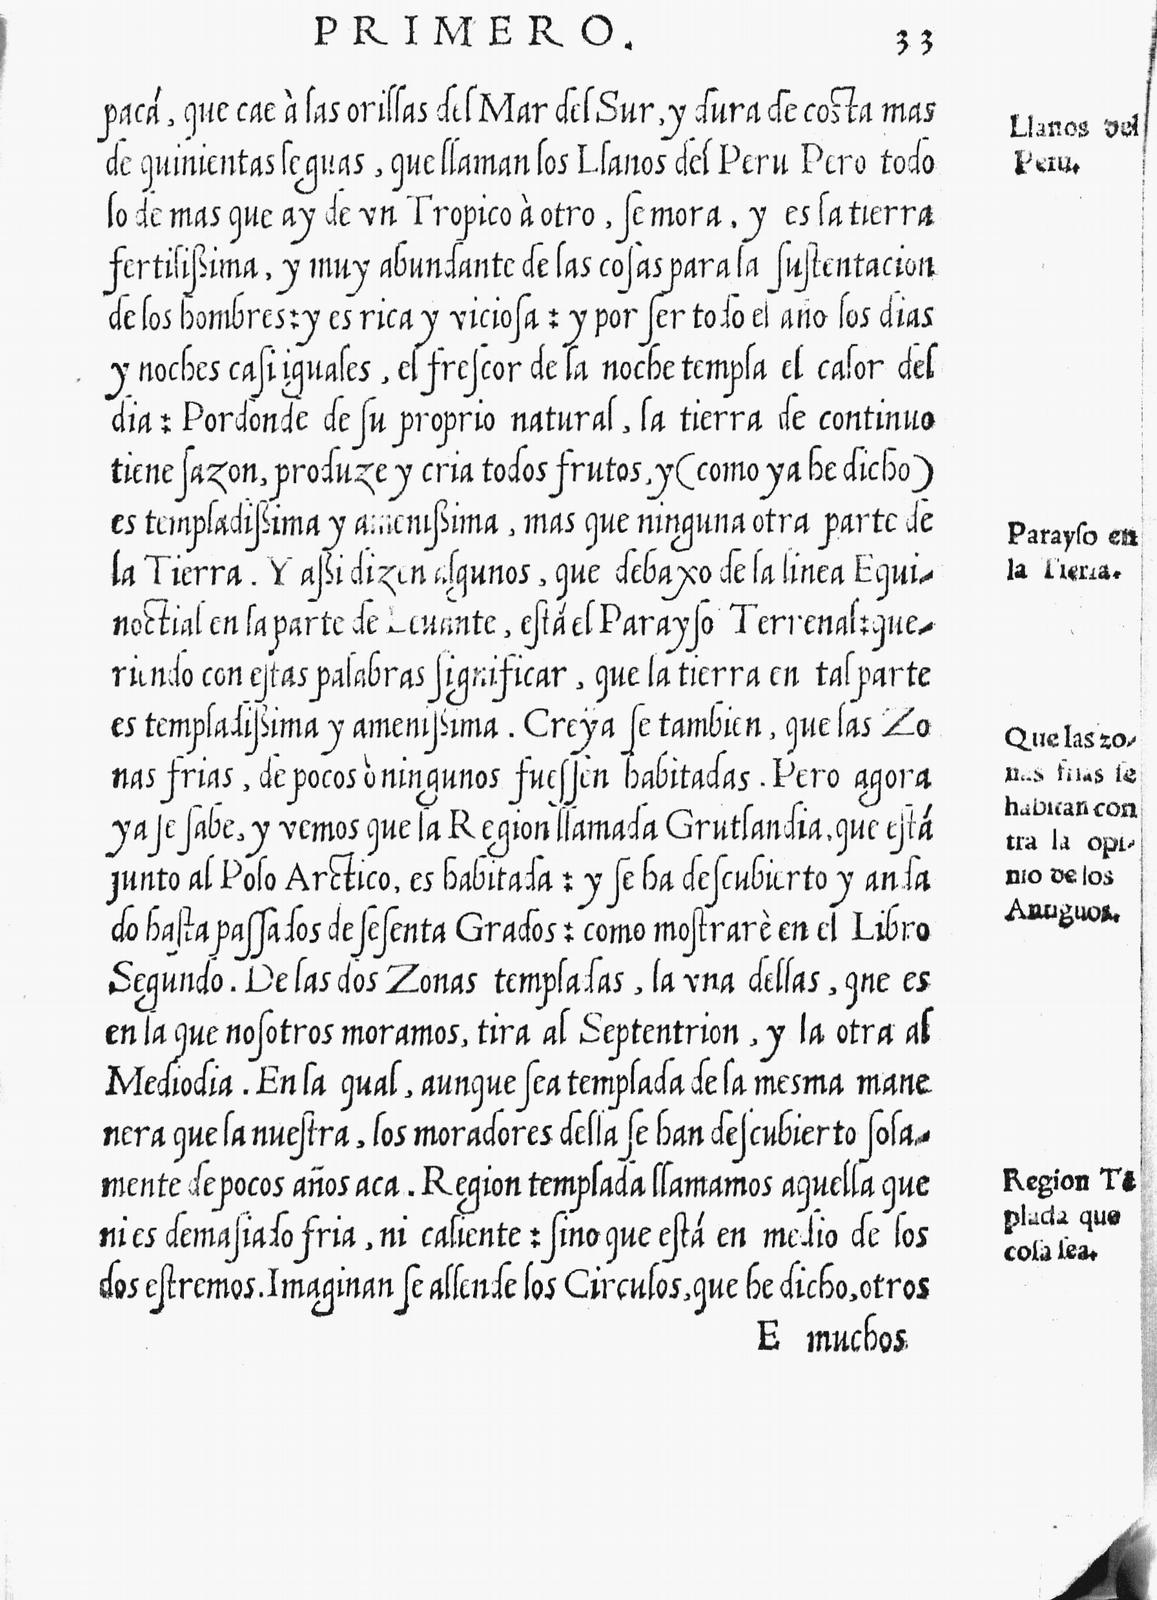 PRIMERO.
33
pacá, que cae à las orillas del Mar del Sur, y dura de costa mas
de quinientas leguas, que llaman los Llanos del Peru Pero todo
lo de mas que ay de vn Tropico à otro, se mora, y es la tierra
fertilißima, y muy abundante de las cosas para la sustentacion
de los hombres: y es rica y viciosa: y por ser todo el año los dias
y noches casi iguales, el frescor de la noche templa el calor del
dia: Pordonde de su proprio natural, la tierra de continuo
tiene sazon, produze y cria todos frutos, y (como ya he dicho)
es templadißima y amenißima, mas que ninguna otra parte de
la Tierra. Y aßi dizen algunos, que debaxo de la linea Equi-
noctial en la parte de Leuante, está el Parayso Terrenal: que-
riendo con estas palabras significar, que la tierra en tal parte
es templadißima y amenißima. Creya se tambien, que las Zo
nas frias, de pocos ò ningunos fuessen habitadas. Pero agora
ya se sabe, y vemos que la Region llamada Grutlandia, que está
junto al Polo Arctico, es habitada: y se ha descubierto y anda
do hasta passados de sesenta Grados: como mostrarè en el Libro
Segundo. De las dos Zonas templadas, la vna dellas, qne es
en la que nosotros moramos, tira al Septentrion, y la otra al
Mediodia. En la qual, aunque sea templada de la mesma mane
nera que la nuestra, los moradores della se han descubierto sola-
mente de pocos años aca. Region templada llamamos aquella que
ni es demasiado fria, ni caliente: sino que está en medio de los
dos estremos. Imaginan se allende los Circulos, que he dicho, otros
E muchos
Llanos del
Peru.
Parayso en
la Tierra.
Que las zo-
nas frias se
habitan con
tra la opi-
nio de los
Antiguos.
Region Tē
plada que
cosa sea.